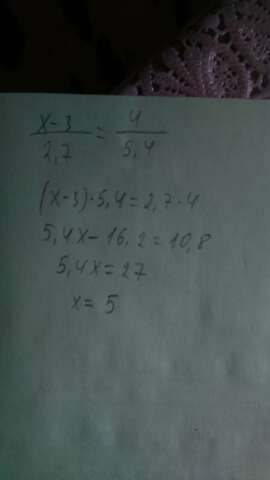 x-3/2,7 = 4/5,4
(x-3)·5,4=2,7·4
5,4x-16,2=10,8
5,4x=27
x=5